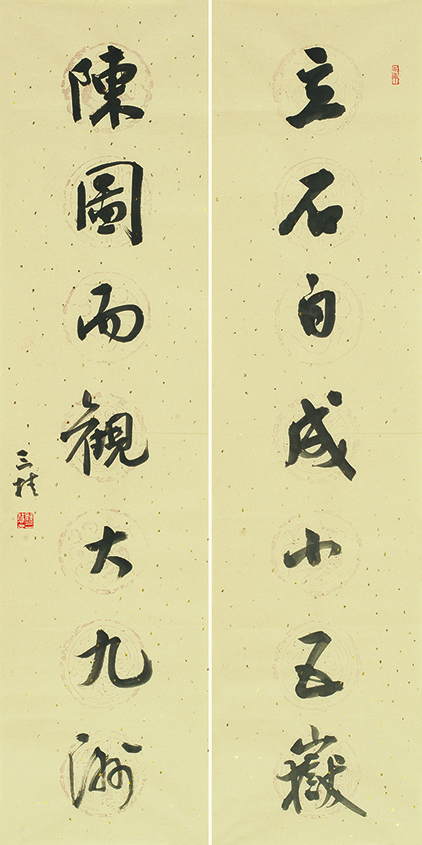 立石自成小五嶽
陳圖而觀大九洲
三桂